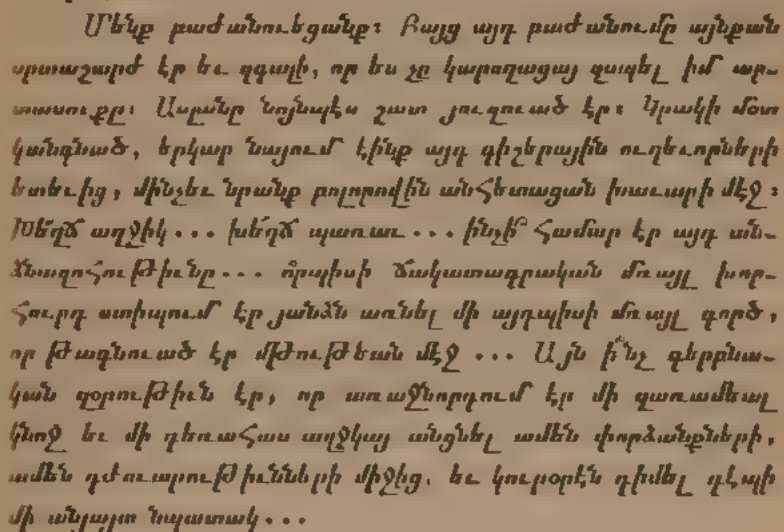 Մենք բաժանուեցանք։ Բայց այդ բաժանումը այնքան
սրտաշարժ էր եւ զգալի, որ ես չը կարողացայ զսպել իմ ար-
տասուքը։ Ասլանը նոյնպէս շատ յուզուած էր։ Կրակի մօտ
կանգնած, երկար նայում էինք այդ գիշերային ուղեւորների
ետեւից, մինչեւ նրանք բոլորովին անհետացան խաւարի մէջ։
Խե՜ղճ աղջիկ... խե՜ղճ պառաւ... ինչի՞ համար էր այդ ան-
ձնազոհութիւնը... ո՞րպիսի ճակատագրական մռայլ խոր-
հուրդ ստիպում էր յանձն առնել մի այդպիսի մռայլ գործ,
որ թագնուած էր մթութեան մէջ ... Այն ի՞նչ գերբնա-
կան զօրութիւն էր, որ առաջնորդում էր մի զառամեալ
կնոջ եւ մի դեռահաս աղջկայ անցնել ամեն փորձանքների,
ամեն դժուարութիւնների միջից, եւ կուրօրէն դիմել դէպի
մի անյայտ նպատակ...